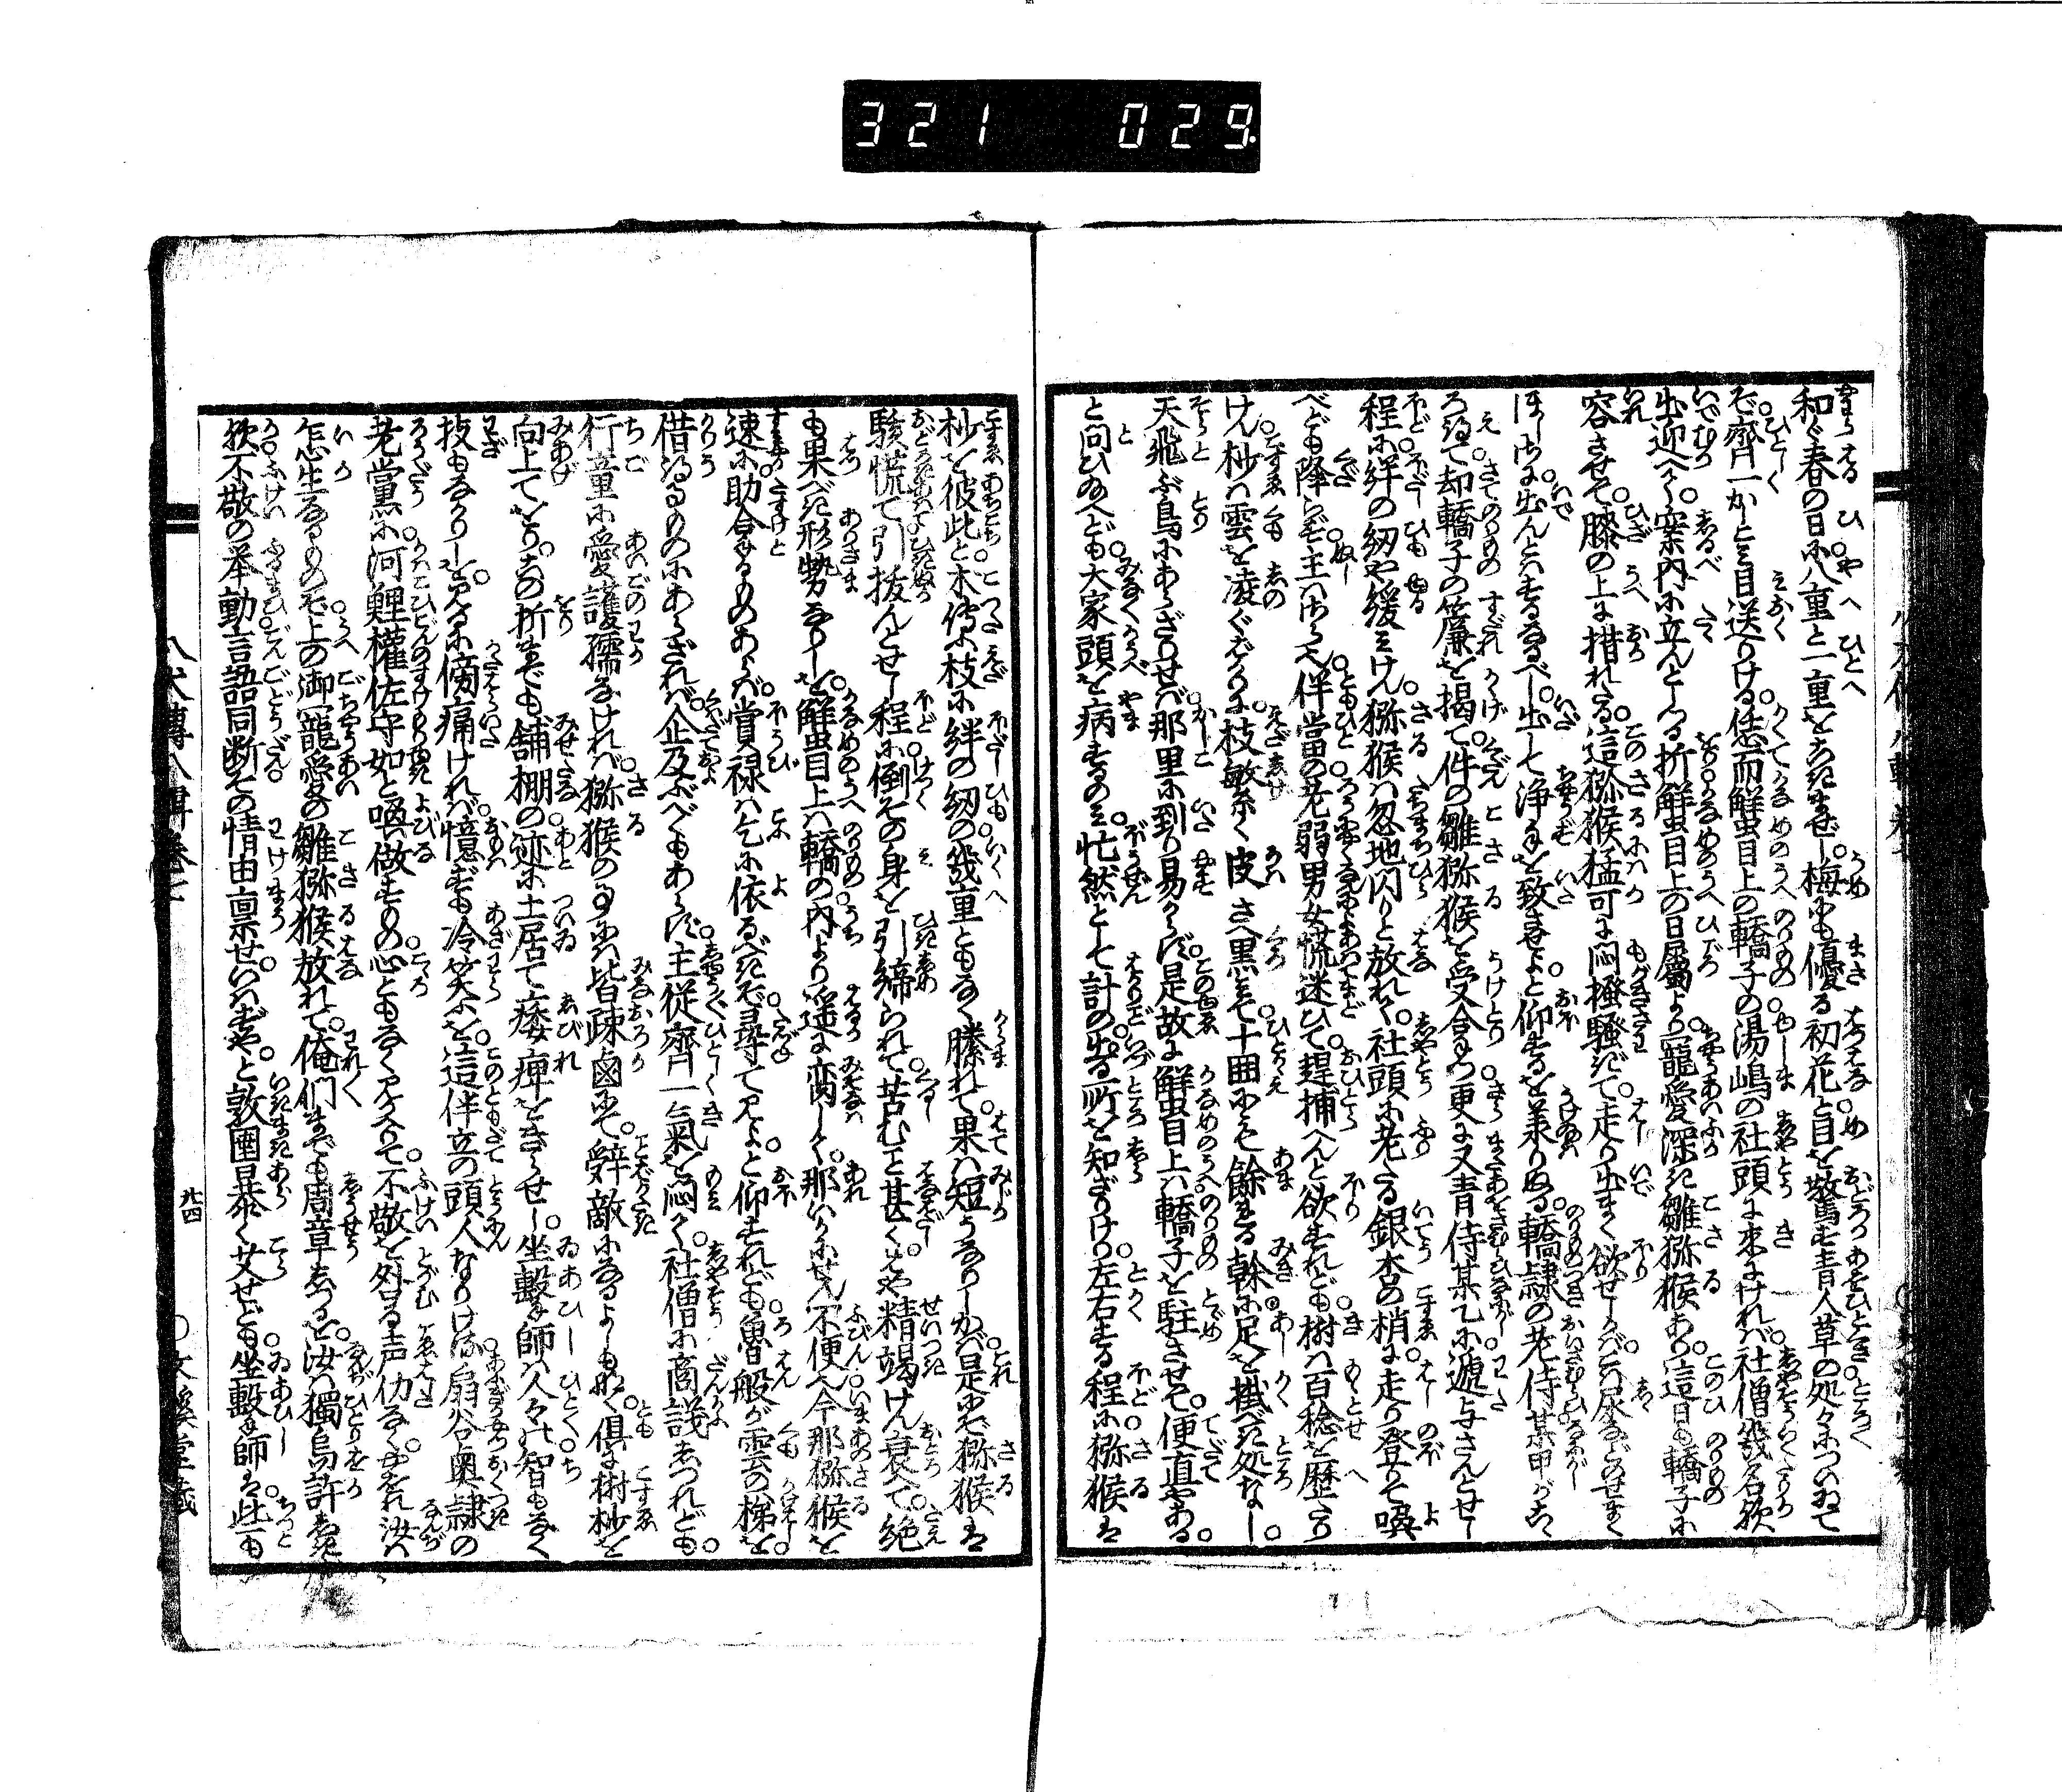 321 029
和ぐ春の日に八重と一重をこきまぜし梅にも優る初花と目を驚す青人草の処々についゐて
ぞ齊一かと見目送りける恁而蟹目上の轎子の湯嶋の社頭に来にければ社僧幾名欤
出迎へて案内に立んとしつる折蟹目上の日属より寵愛深き雛猕猴あり這日も轎子に
容させて膝の上に措れたる這猕猴猛可に悶掻騒ぎて走り出まく欲せしかばこは尿などのせまく
ほしさに出んとはするなるべし出して浄手を致させよと仰するを承りぬる轎隷の老侍某甲がこゝ
ろ得て却轎子の簾を掲て件の雛猕猴を受合つゝ更に又青侍某乙に遞与さんとせし
程に絆の紉や緩みけん猕猴は忽地閃りと放れて社頭に老たる銀杏の梢に走り登りて喚
べども降らず主はさら也伴當の老弱男女慌迷ひて趕捕へんと欲すれども樹は百稔を歴たり
けん杪は雲を凌ぐばかりに枝敏系く皮さへ黒みて十囲にも餘れる幹に足を掛べき処なし
天飛ぶ鳥にあらざりせば那里に到り易からず是故に蟹目上は轎子を駐させて便直やある
と問ひ給へども大家頭を病するのみ忙然として計の出る所を知ざりけり左右する程に猕猴は
杪を彼此と木傳ふ枝に絆の紉の幾重ともなく縢れて果は短うなりしかば是にぞ猕猴は
駭慌て引抜んとせし程に倒その身を引締られて苦むこと甚しくはや精竭けん衰へて絶
も果べき形勢なりしを蟹目上は轎の内より遥に向しくて那いかにせん不便也今那猕猴を
速に助合するものあらば賞禄は乞に依るべきぞ尋て見よと仰すれども魯般が雲の梯を
借得るものにあらざれば企及ぶべもあらず主従齊一氣を悶て社僧に商議しつれども
行童に愛護孺なければ猕猴の事には皆疎鹵にて辤敵になるよしもなく倶に樹杪を
向上てをりこの折までも舗棚の迹に土居て痿痺をきらせし坐撃の師は人々の智もなく
技もなかりしを見るに傍痛ければ憶ずも冷笑ふを這伴立の頭人なりける扇谷の奥隷の
老黨に河鯉權佐守如と喚做すもの心ともなく見かへりて不敬を咎る声伨なくやをれ汝は
乍麼生なるものぞ上の御寵愛の雛猕猴放れて俺們までも周章しつるを汝は獨烏許しき
欤不敬の挙動言語同断その情由稟せいはずやと敦圉暴く叱せども坐撃の師は些も
八犬傳八輯巻七
廿四
文溪堂藏